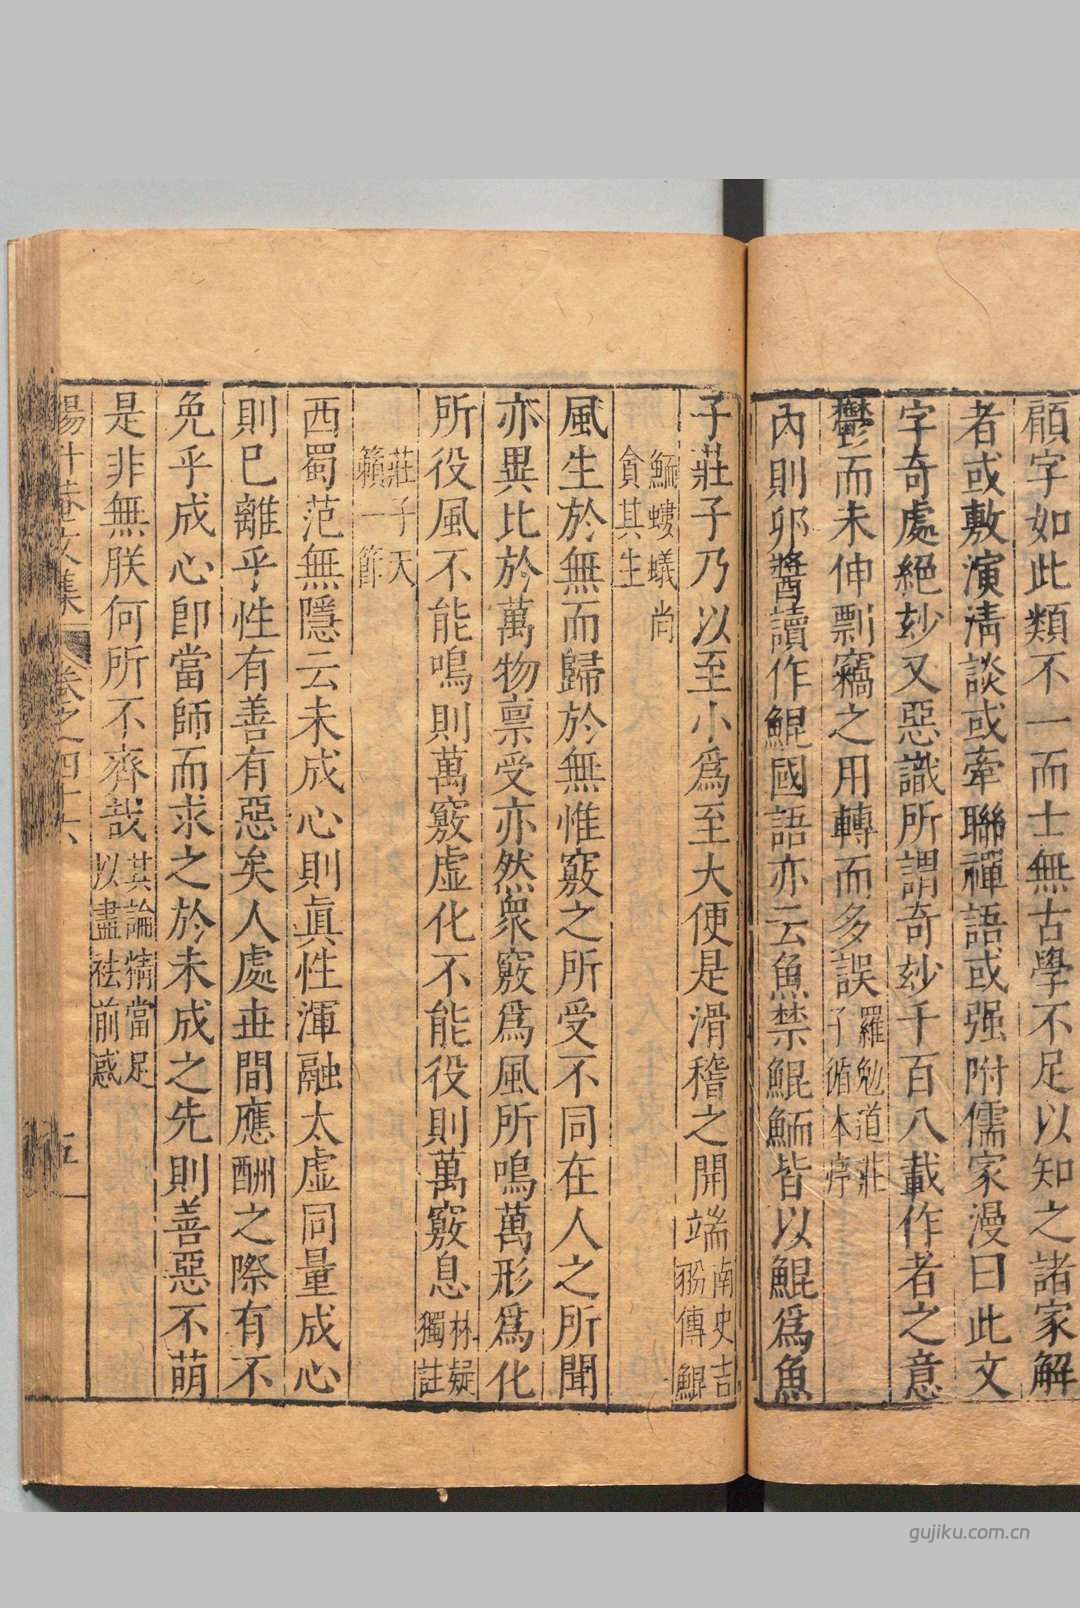 顧字如此類不一而士無古學不足以知之諸家解
者或敷演清談或牽聯禪語或强附儒家漫曰此文
字奇處絕妙又惡識所謂奇妙千百八載作者之意
鬱而未伸剽竊之用轉而多誤羅勉道莊
子循本序
內則卵醬讀作鯤國語亦云魚禁鯤鮞皆以鯤爲魚
子莊子乃以至小爲至大便是滑稽之開端南史吉
翂傳鯤
鮞螻蟻尚
貪其生
風生於無而歸於無惟竅之所受不同在人之所聞
亦異比於萬物禀受亦然衆竅爲風所鳴萬形爲化
所役風不能鳴則萬竅虛化不能役則萬竅息林疑
獨註
莊子天
籟一節
西蜀范無隱云未成心則眞性渾融太虛同量成心
則已離乎性有善有惡矣人處世間應酬之際有不
免乎成心卽當師而求之於未成之先則善惡不萌
是非無朕何所不齊哉其論精當足
以盡祛前惑
楊升菴文集 卷之四十六 五
gujiku.com.cn